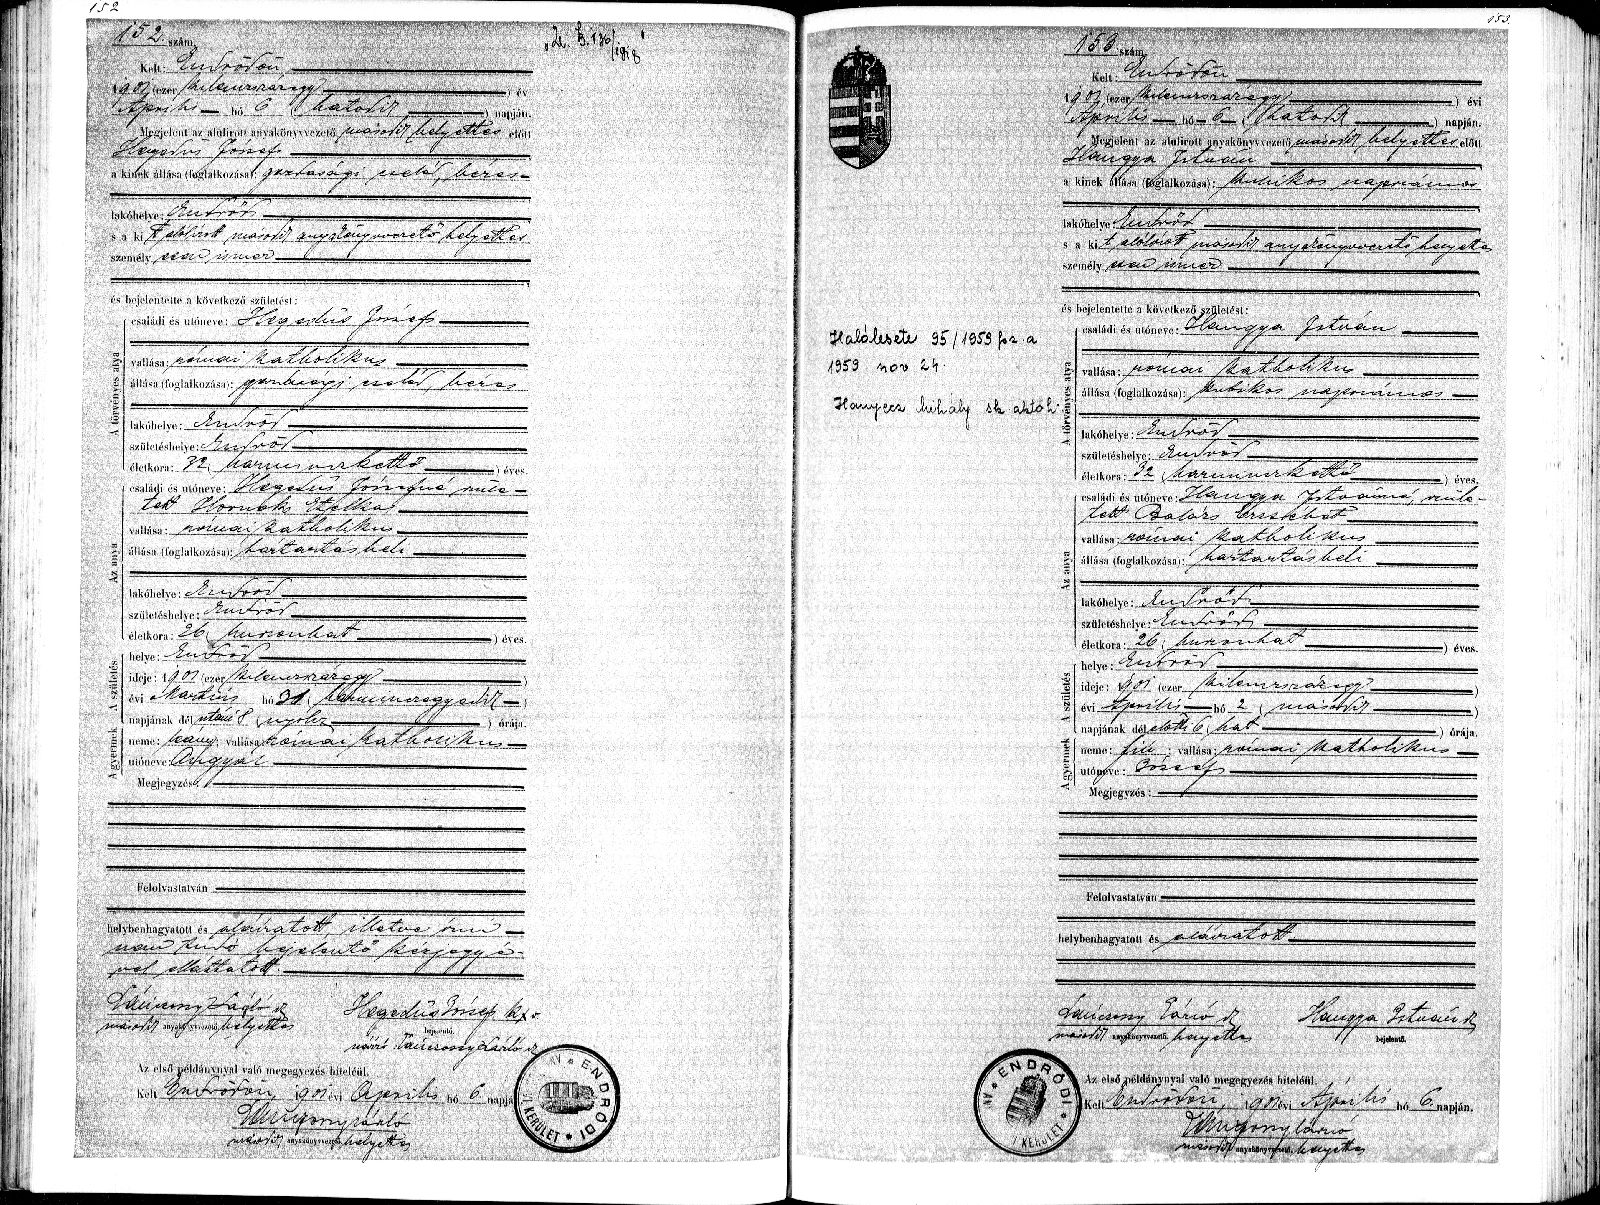 152
152. szám.
Kelt: Endrődön,
1901 (ezer kilenczszázegy) év
Április hó 6 (hatodik) napján.
Megjelent az alulirott anyakönyvvezető második helyettes előtt
Hegedüs József
a kinek állása (foglalkozása): gazdasági cseléd, béres
lakóhelye: Endrőd
s a ki t alólirott második anyakönyvvezető helyettes
személy esen ismer
és bejelentette a következő születést:
A törvényes atya
családi és utóneve: Hegedüs József
vallása: római katholikus
állása (foglalkozása): gazdasági cseléd, béres
lakóhelye: Endrőd
születéshelye: Endrőd
életkora: 32 (harminczkettő) éves.
Az anya
családi és utóneve: Hegedüs Józsefné szüle-
tett Hornok Etelka
vallása: római katholikus
állása (foglalkozása): háztartásbeli
lakóhelye: Endrőd
születéshelye: Endrőd
életkora: 26 (huszonhat) éves.
A születés
helye: Endrőd
ideje: 1901 (ezer kilenczszázegy)
évi Március hó 31 (harminczegyedik)
napjának dél utáni 8 (nyolcz) órája.
A gyermek
neme: leány; vallása: római katholikus
utóneve:
Megjegyzés:
Felolvastatván
helybenhagyatott és aláíratott, illetve írni
nem tudó bejelentő kézjegyé-
vel elláttatott.
második anyakönyvvezető helyettes
Hegedüs József
bejelentő.
Az első példánynyal való megegyezés hiteléül.
Kelt Endrődön, 1901 évi Április hó 6. napján
második anyakönyvvezető helyettes
ENDRŐDI
I. KERÜLET
153.
153 szám.
Kelt: Endrődön
1901 (ezer kilenczszázegy) évi
Április hó 6 (hatodik) napján.
Megjelent az alulirott anyakönyvvezető második helyettes előtt
Hangya István
a kinek állása (foglalkozása): kubikos napszámos
lakóhelye: Endrőd
s a ki t alólirott második anyakönyvvezető helyettes
személy esen ismer
és bejelentette a következő születést:
Halálesete 95/1959 fsz. a
1959 nov 24.
Hanyecz Mihály sk aktőh.
A törvényes atya
családi és utóneve: Hangya István
vallása: római katholikus
állása (foglalkozása): kubikos napszámos
lakóhelye: Endrőd
születéshelye: Endrőd
életkora: 32 (harminczkettő) éves.
Az anya
családi és utóneve: Hangya Istvánné, szüle-
tett Balázs Erzsébet
vallása: római katholikus
állása (foglalkozása): háztartásbeli
lakóhelye: Endrőd
születéshelye: Endrőd
életkora: 26 (huszonhat) éves.
A születés
helye: Endrőd
ideje: 1901 (ezer kilenczszázegy)
évi Április hó 2 (második)
napjának dél előtti 6 (hat) órája.
A gyermek
neme: fiú; vallása: római katholikus
utóneve: József
Megjegyzés:
Felolvastatván
helybenhagyatott és aláíratott
második anyakönyvvezető. helyettes
Hangya István
bejelentő.
Az első példánynyal való megegyezés hiteléül.
Kelt Endrődön, 1901 évi Április hó 6 napján.
második anyakönyvvezető. helyettes
ENDRŐDI
I. KERÜLET